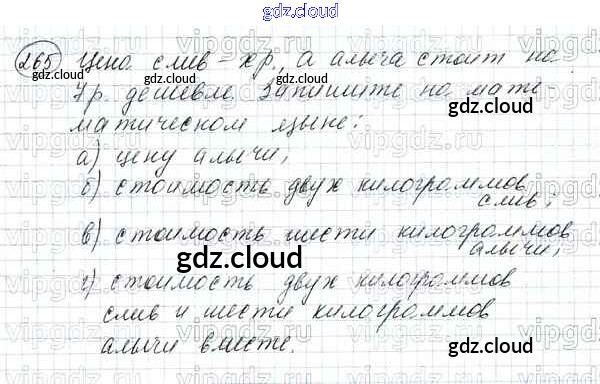 gdz.cloud
265 Цена слив - x р., а алыча стоит на
7 р. дешевле. Запишите на мате-
матическом языке:
а) цену алычи;
б) стоимость двух килограммов
слив;
в) стоимость шести килограммов
алычи;
gdz.cloud
г) стоимость двух килограммов
слив и шести килограммов
алычи вместе.
gdz.cloud